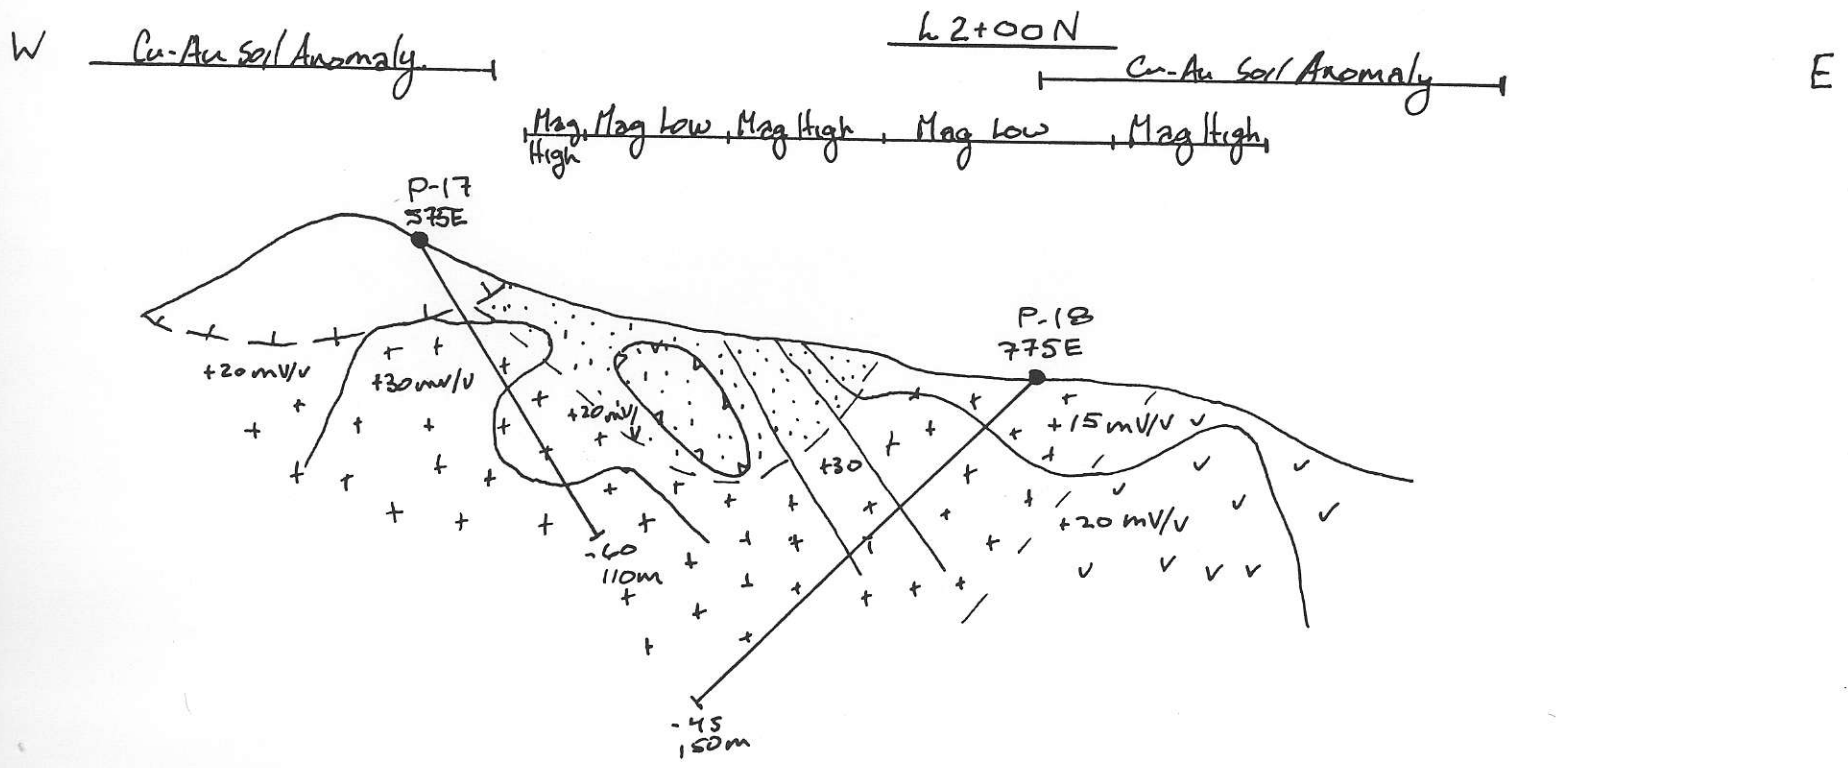 L 2+00N
W
Cu-Au Soil Anomaly
Cu-Au Soil Anomaly
E
Mag High
Mag Low
Mag High
Mag Low
Mag High
P-17
575E
P-18
775E
+20mV/V
+30mV/V
+20mV/V
+30
+15mV/V
+20mV/V
-60
110m
-45
150m